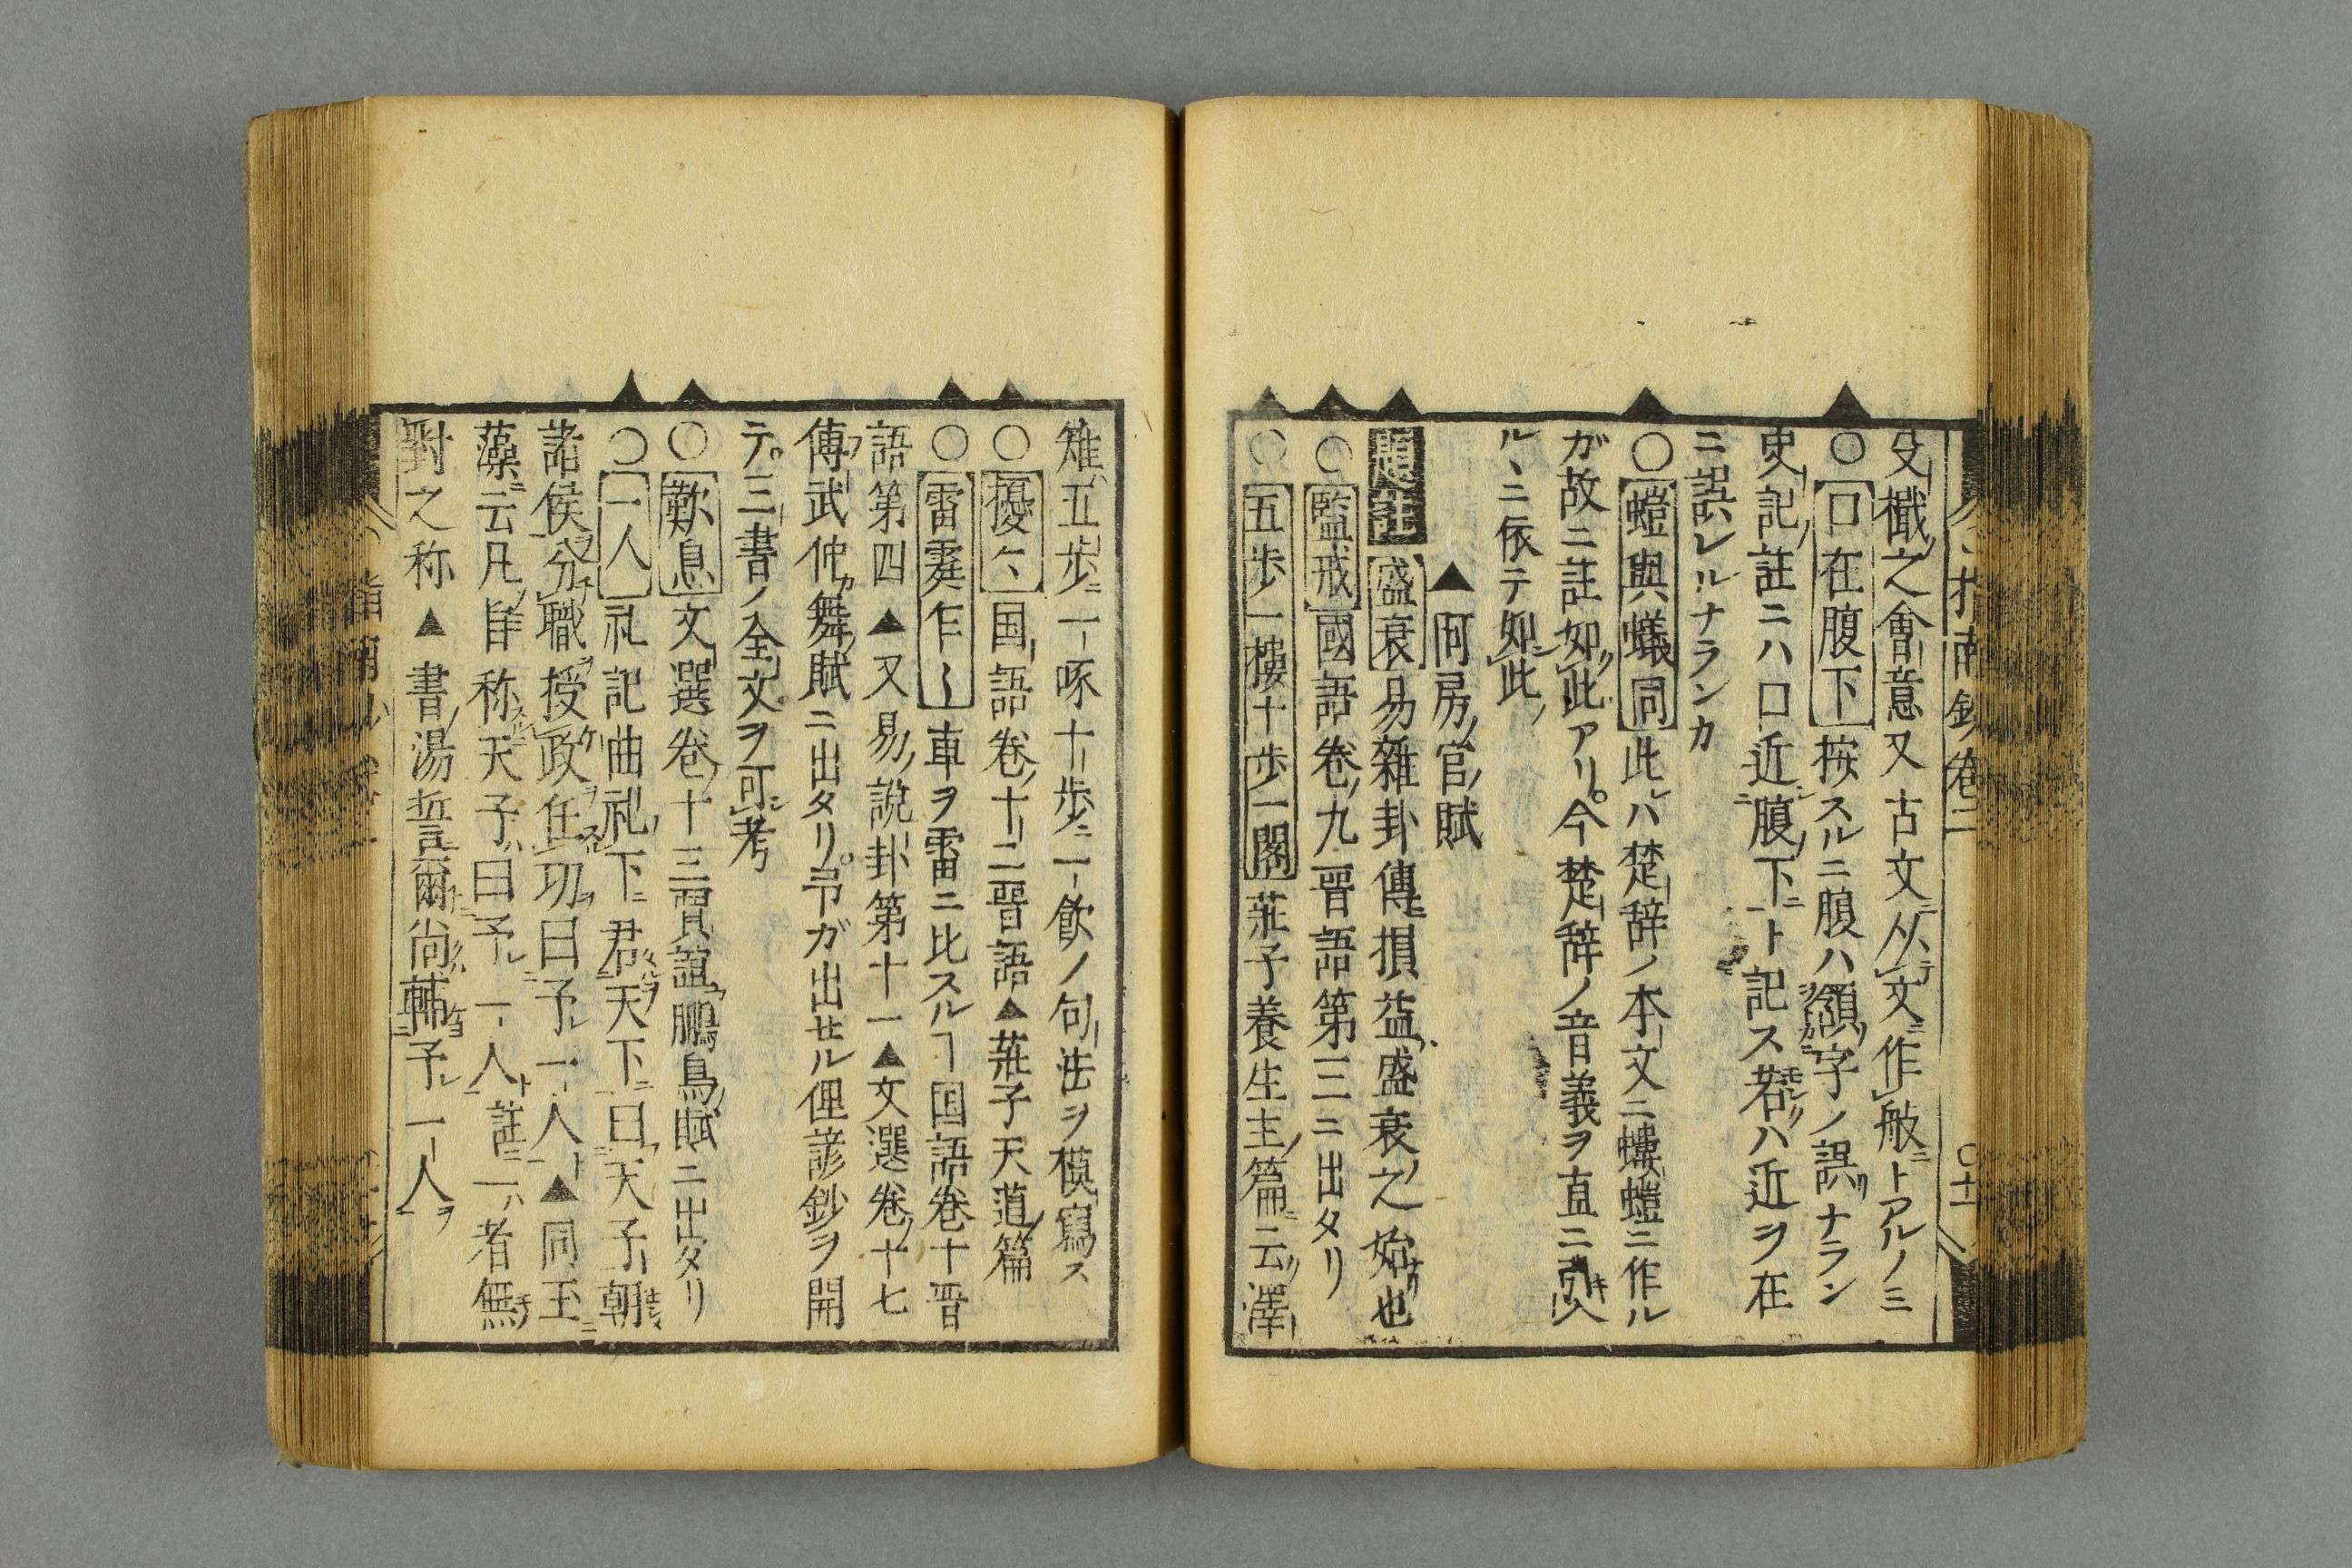 殳檝之會意又古文从文作舣トアルノミ
○口在腹下按スルニ腹ハ頷字ノ誤ナラン
史記註ニハ口近腹下ト記ス若ハ近ヲ在
ニ誤レルナランカ
○螘與蟻同此ハ楚辞ノ本文ニ螻螘ニ作ル
ガ故ニ註如此アリ今楚辞ノ音義ヲ直ニ引入
ルヽニ依テ如此
▲阿房官賦
題註 盛衰易雜卦傳損益盛衰之始也
○監戒國語卷九晋語第三ニ出タリ
○五歩一樓十歩一閣莊子養生主篇云澤
雉五歩一啄十歩一飮ノ句法ヲ模寫ス
○擾々国語卷十二晋語▲莊子天道篇
○雷霆乍〱車ヲ雷ニ比スルヿ国語卷十晋
語第四▲又易説卦第十一▲文選卷十七
傳武仲舞賦ニ出タリ。予ガ出セル俚諺鈔ヲ開
テ。三書ノ全文ヲ可考
○歎息文選卷十三賈誼鵬鳥賦ニ出タリ
○一人礼記曲礼下君天下曰天子朝
諸侯分職授政任功曰予一人▲同玉
藻云凡自称天子曰予一人註一者無
對之称▲書湯誓爾尚輔予一人
指南鈔卷二
○十一